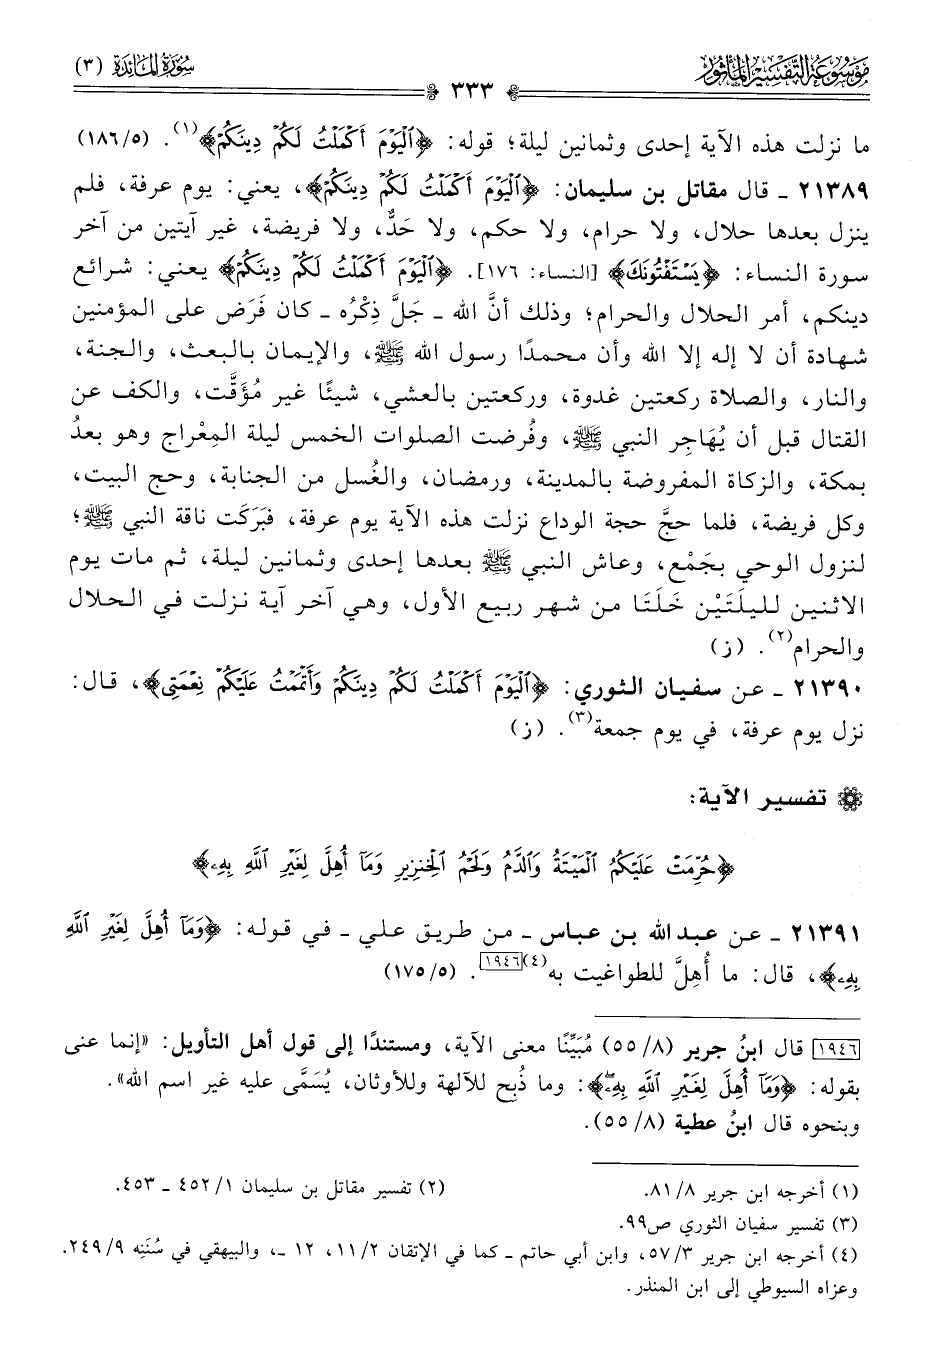 موسوعة التفسير المأثور
سورة المائدة (٣)
٣٣٣
ما نزلت هذه الآية إحدى وثمانين ليلة؛ قوله: ﴿ٱلۡيَوۡمَ أَكۡمَلۡتُ لَكُمۡ دِينَكُمۡ﴾(١). (١٨٦/٥)
٢١٣٨٩ ـ قال مقاتل بن سليمان: ﴿ٱلۡيَوۡمَ أَكۡمَلۡتُ لَكُمۡ دِينَكُمۡ﴾، يعني: يوم عرفة، فلم
ينزل بعدها حلال، ولا حرام، ولا حكم، ولا حَدٌّ، ولا فريضة، غير آيتين من آخر
سورة النساء: ﴿يَسۡتَفۡتُونَكَ﴾ [النساء: ١٧٦]. ﴿ٱلۡيَوۡمَ أَكۡمَلۡتُ لَكُمۡ دِينَكُمۡ﴾ يعني: شرائع
دينكم، أمر الحلال والحرام؛ وذلك أنَّ الله ـ جَلَّ ذِكْرُه ـ كان فَرَض على المؤمنين
شهادة أن لا إله إلا الله وأن محمدًا رسول الله ﷺ، والإيمان بالبعث، والجنة،
والنار، والصلاة ركعتين غدوة، وركعتين بالعشي، شيئًا غير مُؤَقَّت، والكف عن
القتال قبل أن يُهَاجِر النبي ﷺ، وفُرضت الصلوات الخمس ليلة المِعْراج وهو بعدُ
بمكة، والزكاة المفروضة بالمدينة، ورمضان، والغُسل من الجنابة، وحج البيت،
وكل فريضة، فلما حجَّ حجة الوداع نزلت هذه الآية يوم عرفة، فبَرَكَت ناقة النبي ﷺ؛
لنزول الوحي بجَمْع، وعاش النبي ﷺ بعدها إحدى وثمانين ليلة، ثم مات يوم
الاثنين لليلَتَيْن خَلَتَا من شهر ربيع الأول، وهي آخر آية نزلت في الحلال
والحرام(٢). (ز)
٢١٣٩٠ ـ عن سفيان الثوري: ﴿ٱلۡيَوۡمَ أَكۡمَلۡتُ لَكُمۡ دِينَكُمۡ وَأَتۡمَمۡتُ عَلَيۡكُمۡ نِعۡمَتِي﴾، قال:
نزل يوم عرفة، في يوم جمعة(٣). (ز)
تفسير الآية:
﴿حُرِّمَتۡ عَلَيۡكُمُ ٱلۡمَيۡتَةُ وَٱلدَّمُ وَلَحۡمُ ٱلۡخِنزِيرِ وَمَآ أُهِلَّ لِغَيۡرِ ٱللَّهِ بِهِۦ﴾
٢١٣٩١ ـ عن عبد الله بن عباس ـ من طريق علي ـ في قوله: ﴿وَمَآ أُهِلَّ لِغَيۡرِ ٱللَّهِ
بِهِۦ﴾، قال: ما أُهِلَّ للطواغيت به(٤)[١٩٤٦]. (١٧٥/٥)
[١٩٤٦] قال ابنُ جرير (٥٥/٨) مُبَيِّنًا معنى الآية، ومستندًا إلى قول أهل التأويل: «إنما عنى
بقوله: ﴿وَمَآ أُهِلَّ لِغَيۡرِ ٱللَّهِ بِهِۦ﴾: وما ذُبح للآلهة وللأوثان، يُسَمَّى عليه غير اسم الله».
وبنحوه قال ابنُ عطية (٥٥/٨).
(١) أخرجه ابن جرير ٨١/٨.
(٢) تفسير مقاتل بن سليمان ٤٥٢/١ ـ ٤٥٣.
(٣) تفسير سفيان الثوري ص٩٩.
(٤) أخرجه ابن جرير ٥٧/٣، وابن أبي حاتم ـ كما في الإتقان ١١/٢، ١٢ ـ، والبيهقي في سُنَنِه ٢٤٩/٩.
وعزاه السيوطي إلى ابن المنذر.